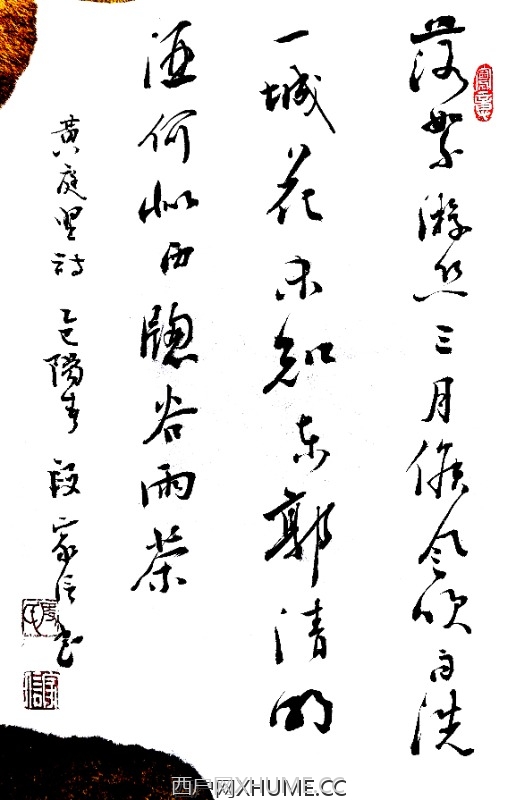 落絮游丝三月候风吹雨洗
一城花未知东郭清明
酒何似西牕谷雨茶
黄庭坚詩 乙巳陽春 段家信书
西户网XHUME.CC